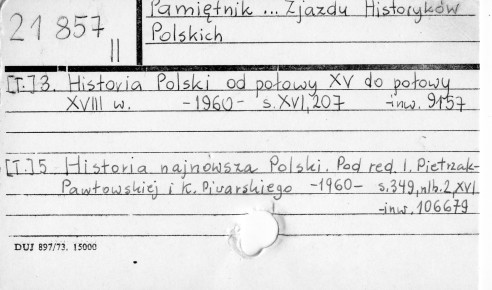 21 857
II
Pamiętnik ... Zjazdu Historyków
Polskich
[T.] 3. Historia Polski od połowy XV do połowy
XVIII w. -1960- s. XVI, 207 -inw. 9157
[T.] 5 Historia najnowsza Polski. Pod red. I. Pietrzak-
Pawłowskiej i K. Piwarskiego -1960- s. 349, nlb. 2, XVI
-inw. 106679
DUJ 897/73. 15000